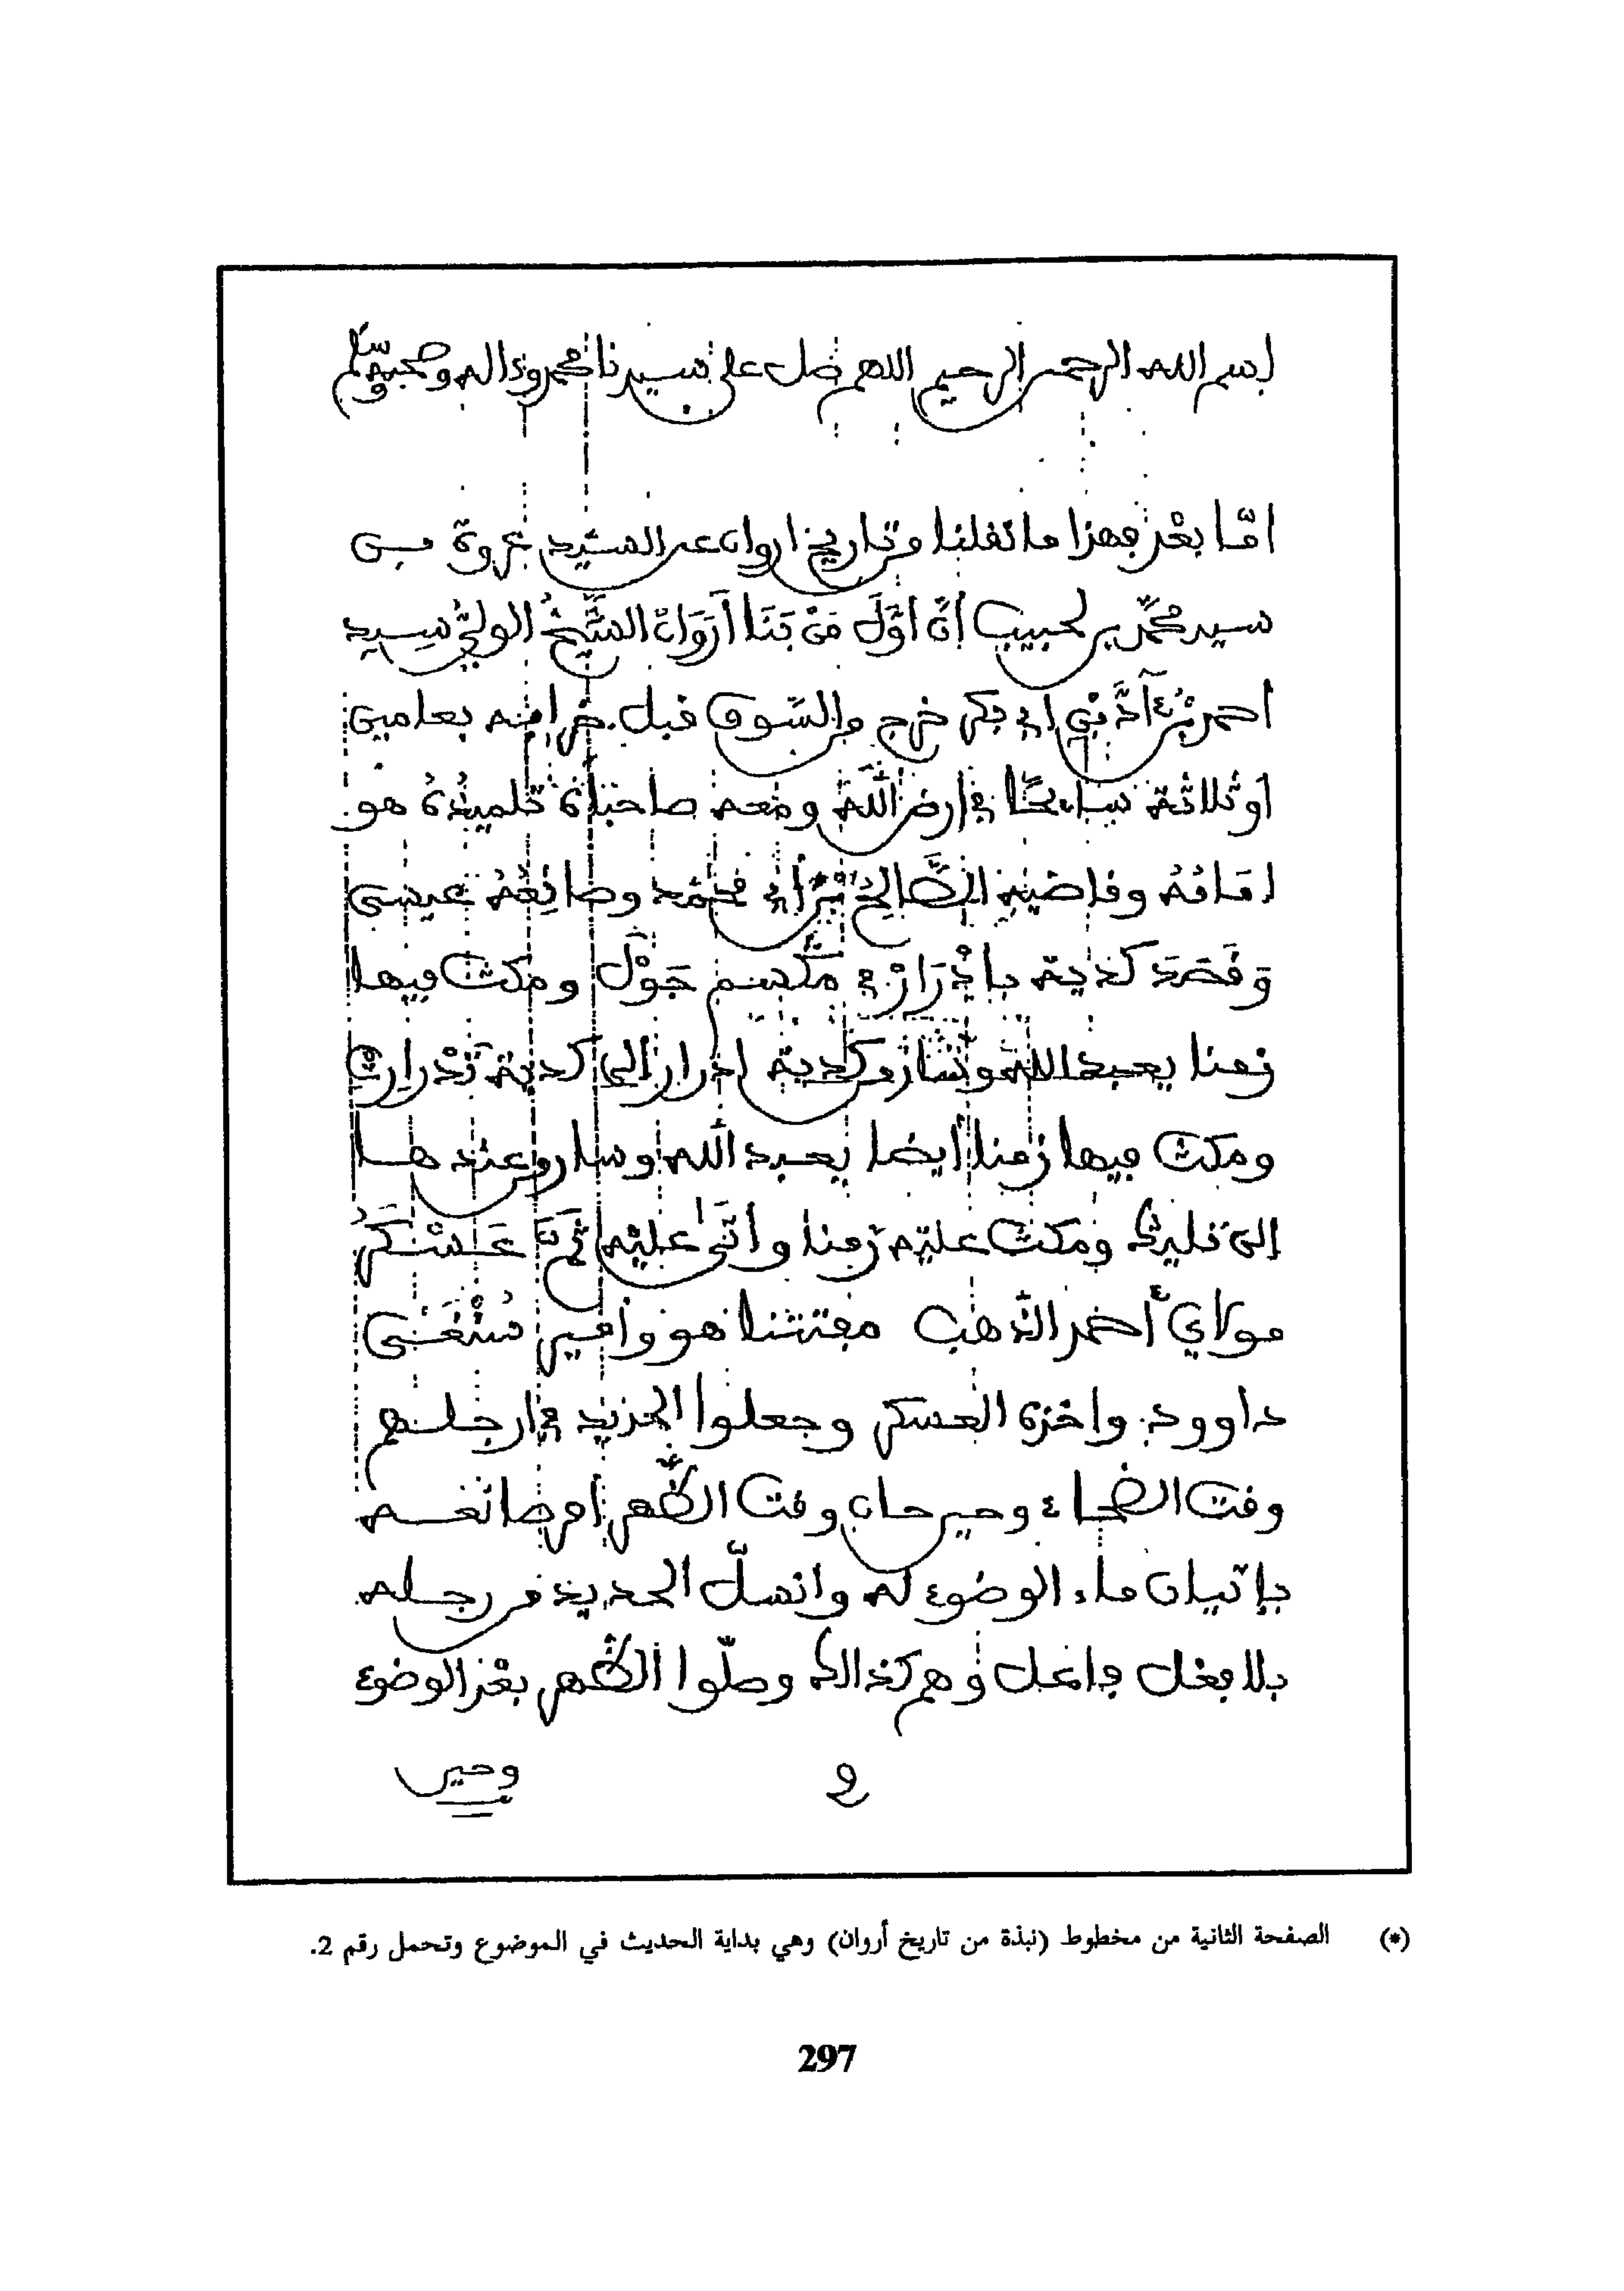 بسم الله الرحمن الرحيم اللهم صل على سيدنا محمد وءاله وصحبه وسلم
امّا بعْد فهذا ما نقلنا من تاريخ اروان عن السيد عروة بن
سيد محمّد بن لحبيب أنّ أوّلَ مَنْ بَنَا أَرَوَانْ الشَّيْخُ الوليُّ سيد
احمد بْنُ آدَّ بْنِ ابي بكر خرج من السّوق قبل خرابه بعامين
او ثلاثة سايحًا في ارض الله ومعه صاحباه تلميذه هو
امامُهُ وقاضيه الطَّالِحُ بْنُ أبي محمّد وصانِعُهُ عيسى
وَقَصَدَ كدية بِادْرَارْ في مكسم جَوْل ومكث فيها
زمنا يعبد الله وسار من كدية ادرار إلى كدية تَدْرارِتْ
ومكث فيها زمنا أيضا يعبد الله وسار من عندها
إلى ومكث عليه زمنا وأتى عليه ثَمَّ عَسْكَرُ
مولاي أحمد الذّهب مفتشنا هو وأمير سُنْغَىٰ
داوود واخذه العسكر وجعلوا الحديد في ارجلهم
وقت الضحاء وحين حان وقت الظّهر أمر صانعه
بإتيان ماء الوضوء له وانسلّ الحديد من رجله
بلا فعل فاعل وهم كذالك وصلّوا الظّهر بعْد الوضوء
2 وحين
(*) الصفحة الثانية من مخطوط (نبذة من تاريخ أروان) وهي بداية الحديث في الموضوع وتحمل رقم 2.
297